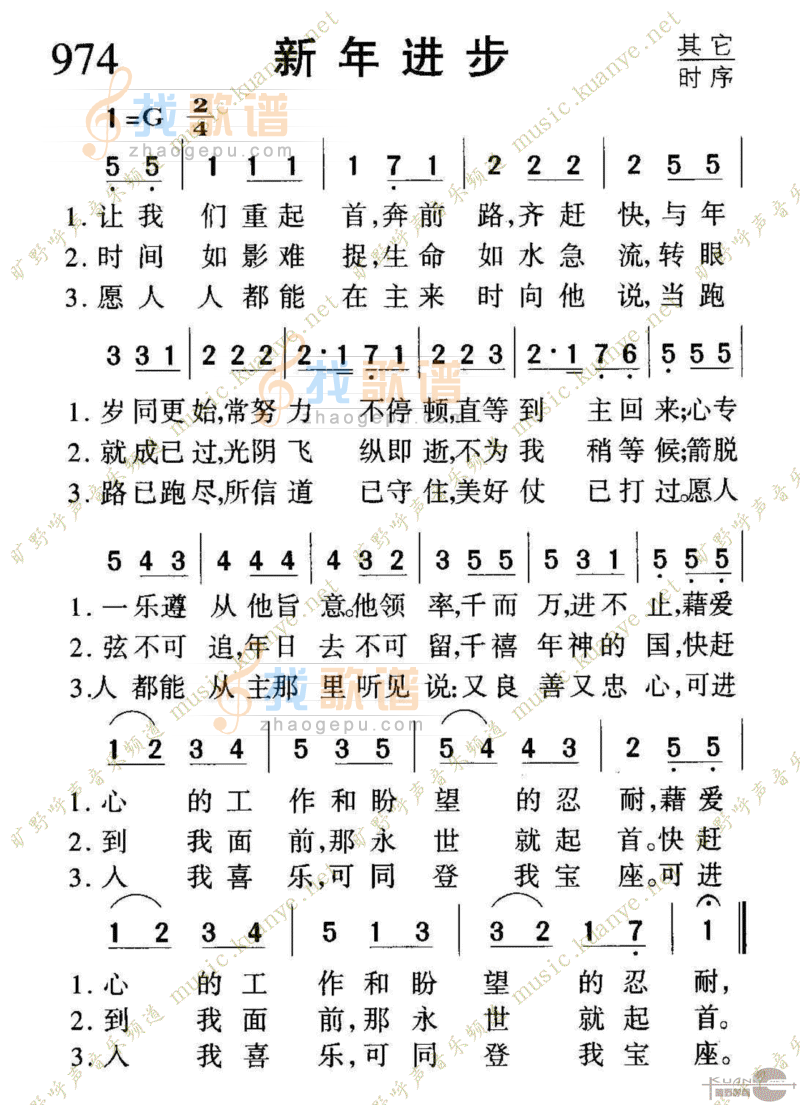 974 新年进步 其它
时序
1=G 2/4
5 5 | 1 1 1 | 1 7 1 | 2 2 2 | 2 5 5 |
1.让我 们重起 首,奔前 路,齐赶 快,与年
2.时间 如影难 捉,生命 如水急 流,转眼
3.愿人 人都能 在主来 时向他 说,当跑
3 3 1 | 2 2 2 | 2·1 7 1 | 2 2 3 | 2·1 7 6 | 5 5 5 |
1.岁同更始,常努力 不停顿,直等到 主回来;心专
2.就成已过,光阴飞 纵即逝,不为我 稍等候;箭脱
3.路已跑尽,所信道 已守住,美好仗 已打过。愿人
5 4 3 | 4 4 4 | 4 3 2 | 3 5 5 | 5 3 1 | 5 5 5 |
1.一乐遵 从他旨 意。他领 率,千而 万,进不 止,藉爱
2.弦不可 追,年日 去不可 留,千禧 年神的 国,快赶
3.人都能 从主那 里听见 说:又良 善又忠 心,可进
1 2 3 4 | 5 3 5 | 5 4 4 3 | 2 5 5 |
1.心 的工 作和盼 望 的忍 耐,藉爱
2.到 我面 前,那永 世 就起 首。快赶
3.人 我喜 乐,可同 登 我宝 座。可进
1 2 3 4 | 5 1 3 | 3 2 1 7 | 1 ‖
1.心 的工 作和盼 望 的忍 耐,
2.到 我面 前,那永 世 就起 首。
3.人 我喜 乐,可同 登 我宝 座。
找歌谱
zhaogepu.com
找歌谱
zhaogepu.com
找歌谱
zhaogepu.com
旷野呼声音乐频道 music.kuanye.net
KUAN